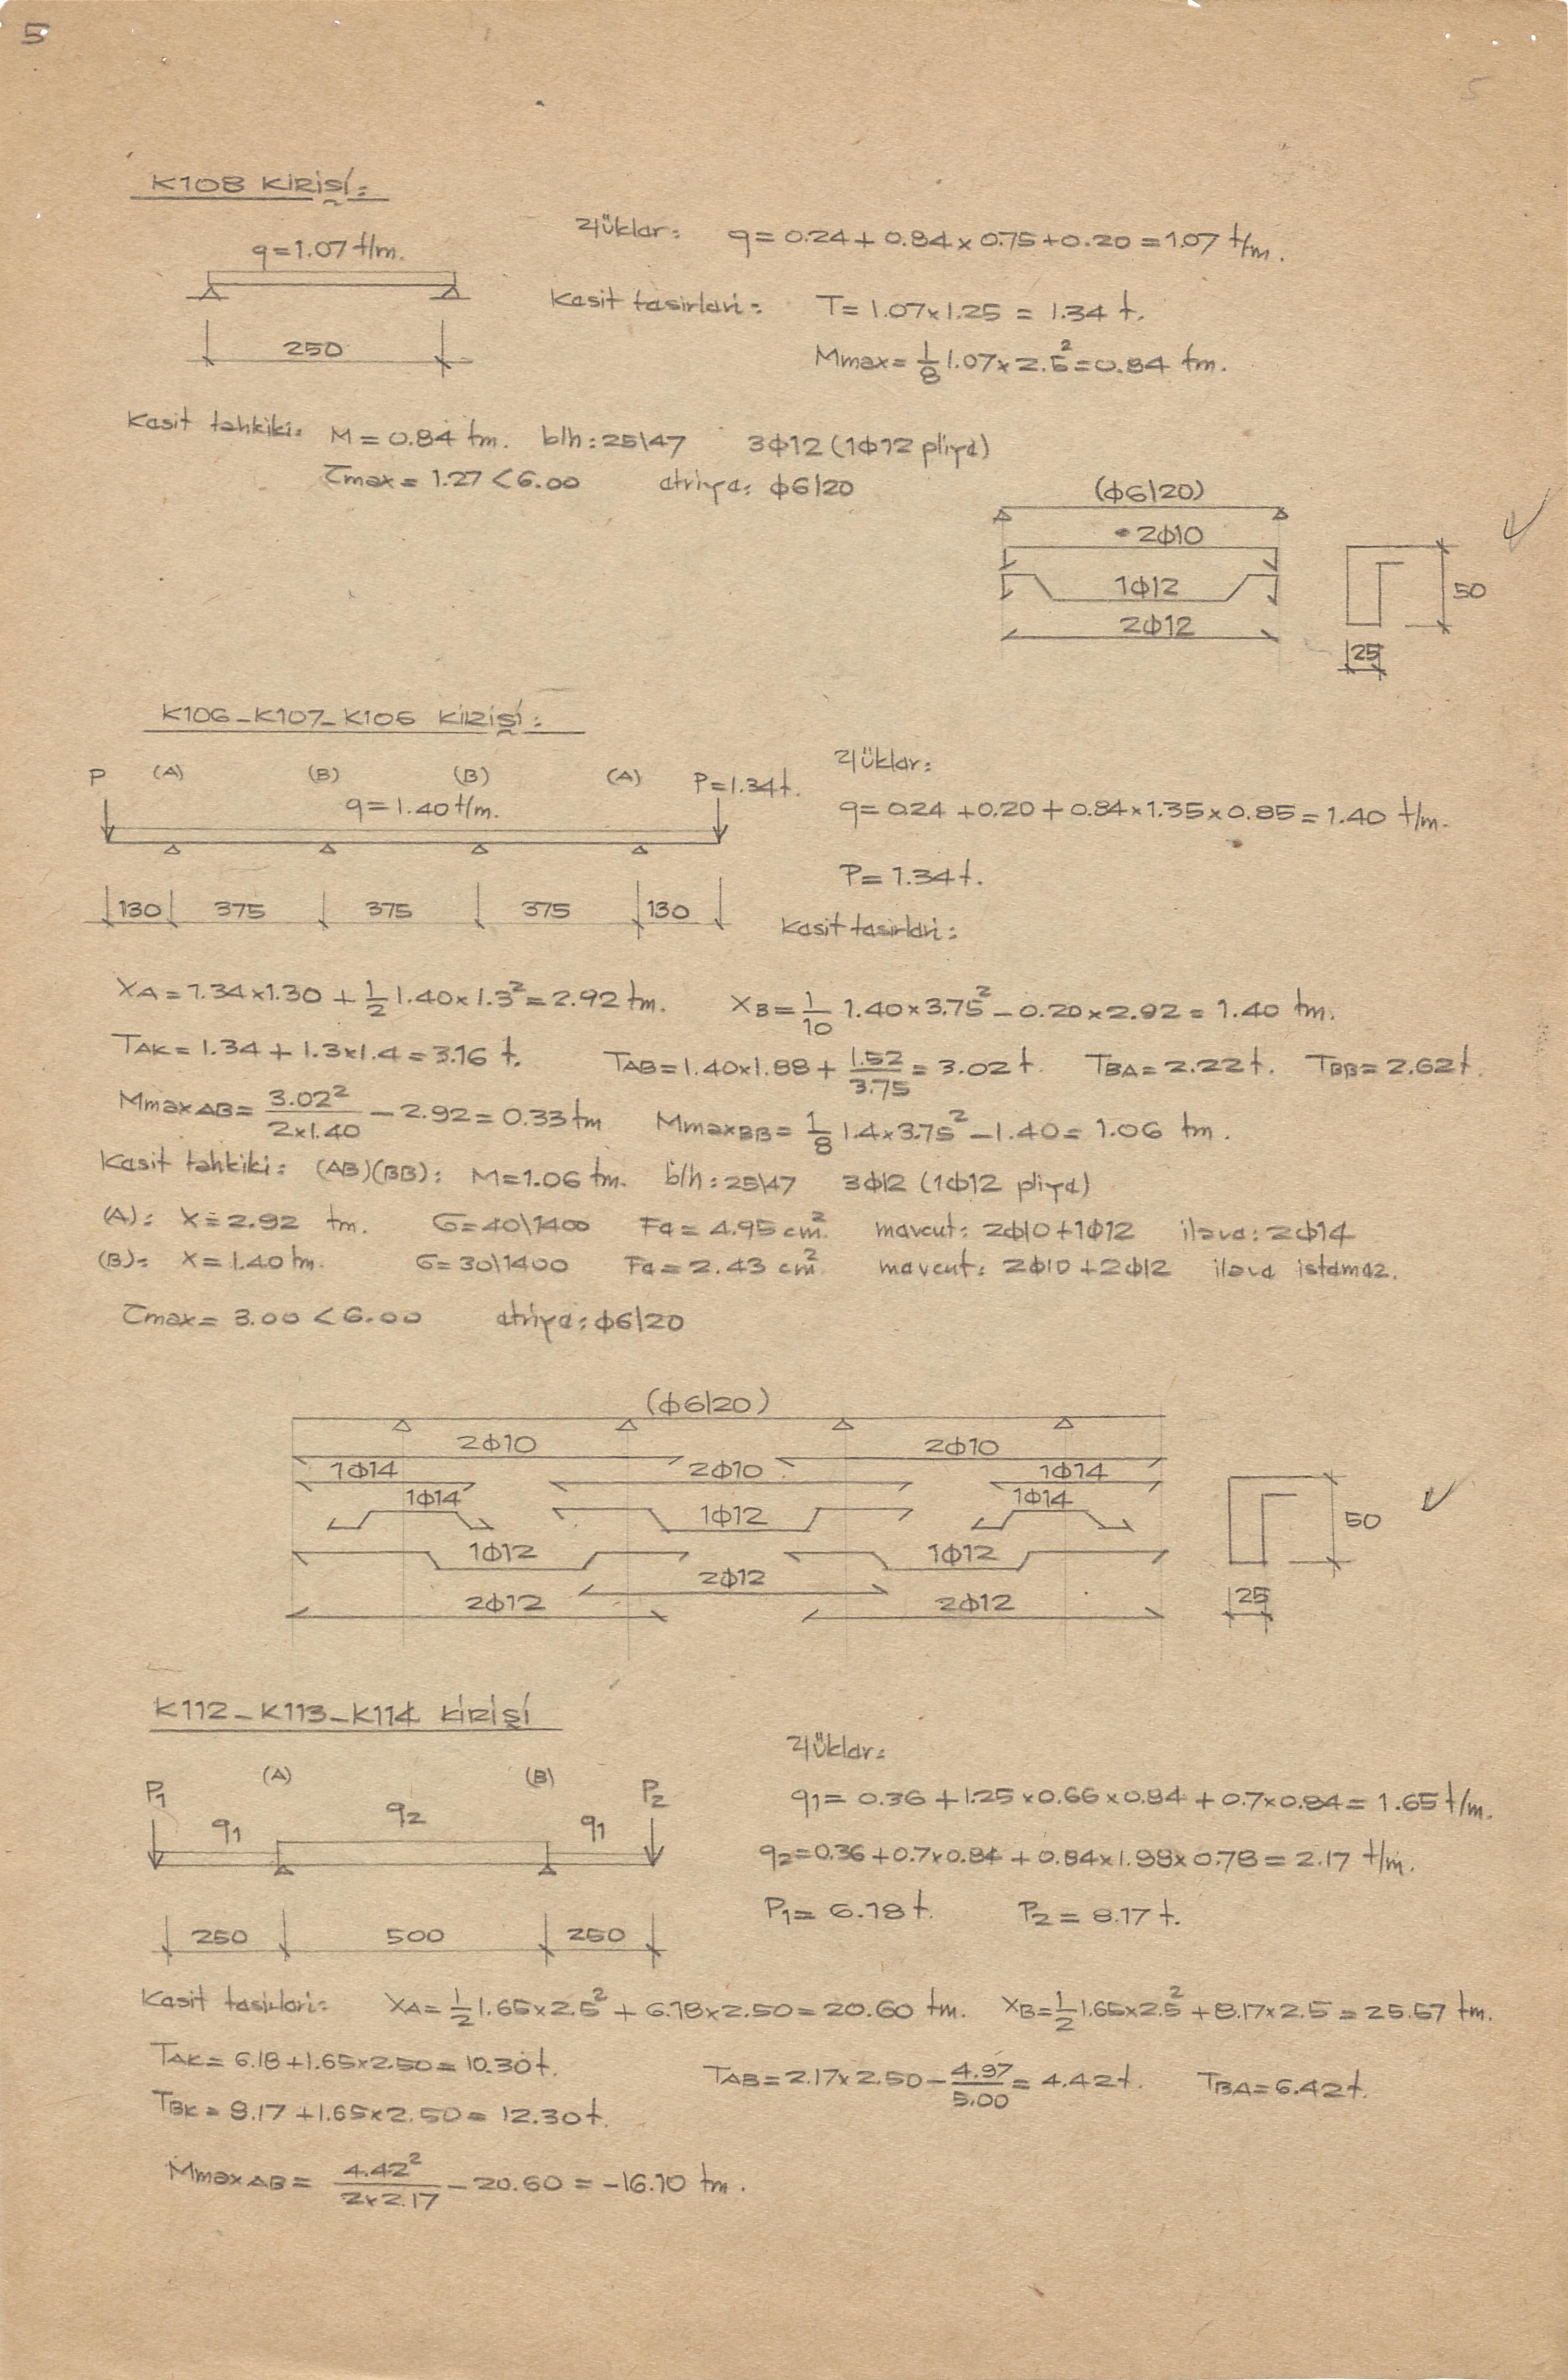 5
5
K108 KİRİŞİ:
q=1.07 t/m.
250
Yükler: q= 0.24+ 0.84 x 0.75+0.20 = 1.07 t/m.
Kesit tesirleri: T= 1.07x1.25 = 1.34 t.
Mmax= 1/8 1.07x 2.5²=0.84 tm.
Kesit tahkiki: M = 0.84 tm. b/h: 25\47 3Φ12 (1Φ12 pliye)
τmax= 1.27 <6.00 etriye: Φ6/20
(Φ6/20)
2Φ10
1Φ12
2Φ12
50
25
K106_K107_K106 KİRİŞİ:
P (A) (B) (B) (A) P=1.34t.
q=1.40 t/m.
130 375 375 375 130
Yükler:
q= 0.24 +0.20 + 0.84x1.35x0.85=1.40 t/m.
P= 1.34t.
Kesit tesirleri:
XA=1.34x1.30 + 1/2 1.40x1.3²=2.92 tm. XB= 1/10 1.40x3.75² - 0.20x2.92 = 1.40 tm.
TAK= 1.34 + 1.3x1.4=3.16 t. TAB=1.40x1.88+ 1.52/3.75 = 3.02t. TBA= 2.22t. TBB= 2.62t.
MmaxAB= 3.02²/2x1.40 - 2.92= 0.33tm MmaxBB= 1/8 1.4x3.75² - 1.40= 1.06 tm.
Kesit tahkiki: (AB)(BB): M=1.06 tm. b/h: 25\47 3Φ12 (1Φ12 pliye)
(A): X=2.92 tm. G=40\1400 Fe= 4.95 cm². mevcut: 2Φ10+1Φ12 ilave: 2Φ14
(B): X=1.40 tm. G=30\1400 Fe= 2.43 cm². mevcut: 2Φ10+2Φ12 ilave istemez.
τmax= 3.00 <6.00 etriye: Φ6/20
(Φ6/20)
2Φ10 2Φ10
1Φ14 2Φ10 1Φ14
1Φ14 1Φ12 1Φ14
1Φ12 1Φ12
2Φ12
2Φ12 2Φ12
50
25
K112_K113_K114 KİRİŞİ
P1 (A) (B) P2
q1 q2 q1
250 500 250
Yükler:
q1= 0.36 +1.25 x0.66 x0.84 + 0.7x0.84= 1.65 t/m.
q2=0.36 +0.7x0.84 + 0.84x1.98x0.78= 2.17 t/m.
P1= 6.18 t. P2 = 8.17 t.
Kesit tesirleri: XA= 1/2 1.65x2.5² + 6.18x2.50=20.60 tm. XB= 1/2 1.65x2.5² +8.17x2.5 = 25.57 tm.
TAK= 6.18+1.65x2.50= 10.30t. TAB=2.17x2.50- 4.97/5.00 = 4.42t. TBA=6.42t.
TBK= 8.17 +1.65x2.50= 12.30t.
MmaxAB= 4.42²/2x2.17 - 20.60 = -16.10 tm.